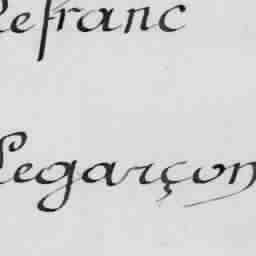 Lefranc
Legarçon